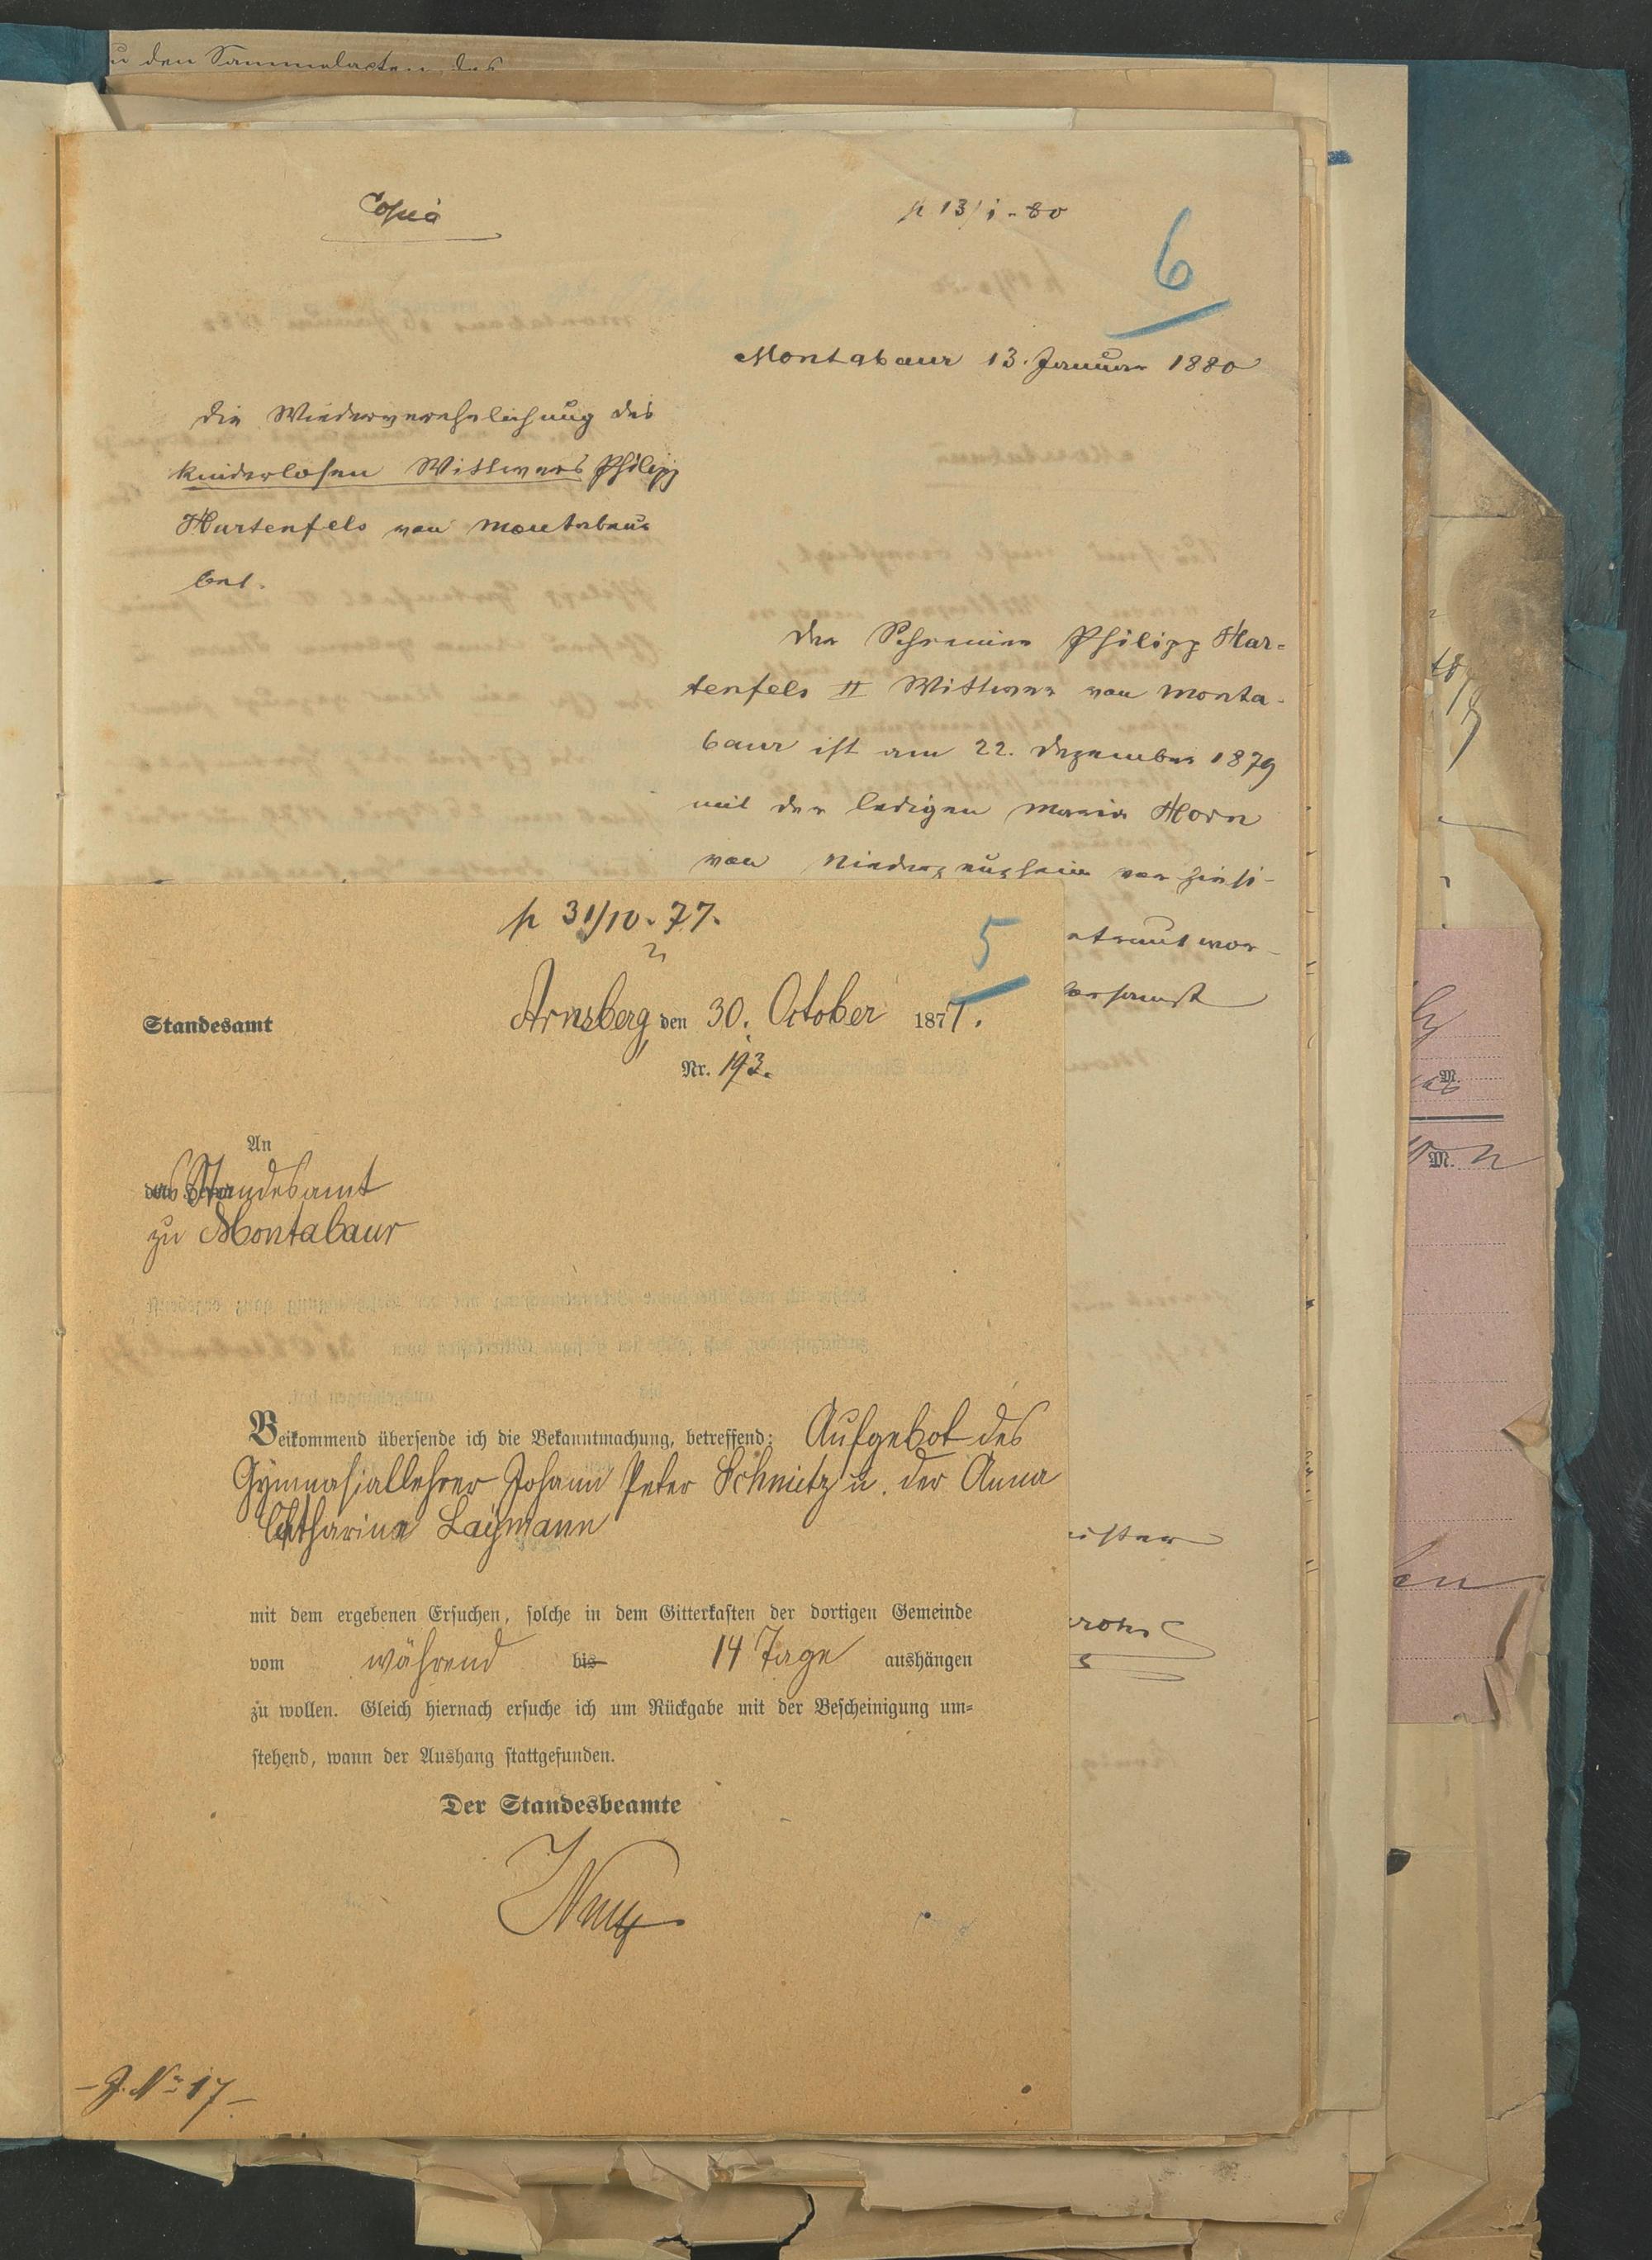 u den Sammelacten des
Copia
p 13/1. 80
6
Montabaur 13. Januar 1880
Die Wiederverehelichung des
kinderlosen Wittwers Philipp
Hartenfels von Montabaur
betr.
Der Schreiner Philipp Har-
tenfels II Wittwer von Monta-
baur ist am 22. Dezember 1879
mit der ledigen Maria Horn
von
atraut wor-
ister
p 31/10. 77.
5
Arnsberg den 30. October 1877.
Standesamt
Nr. 193.
An
das Standesamt
zu Montabaur
Beikommend übersende ich die Bekanntmachung, betreffend: Aufgebot des
Gymnasiallehrer Johann Peter Schmitz u. der Anna
Catharina Laymann
mit dem ergebenen Ersuchen, solche in dem Gitterkasten der dortigen Gemeinde
vom während bis 14 Tage aushängen
zu wollen. Gleich hiernach ersuche ich um Rückgabe mit der Bescheinigung um-
stehend, wann der Aushang stattgefunden.
Der Standesbeamte
- J. No 17 -
M.
M.